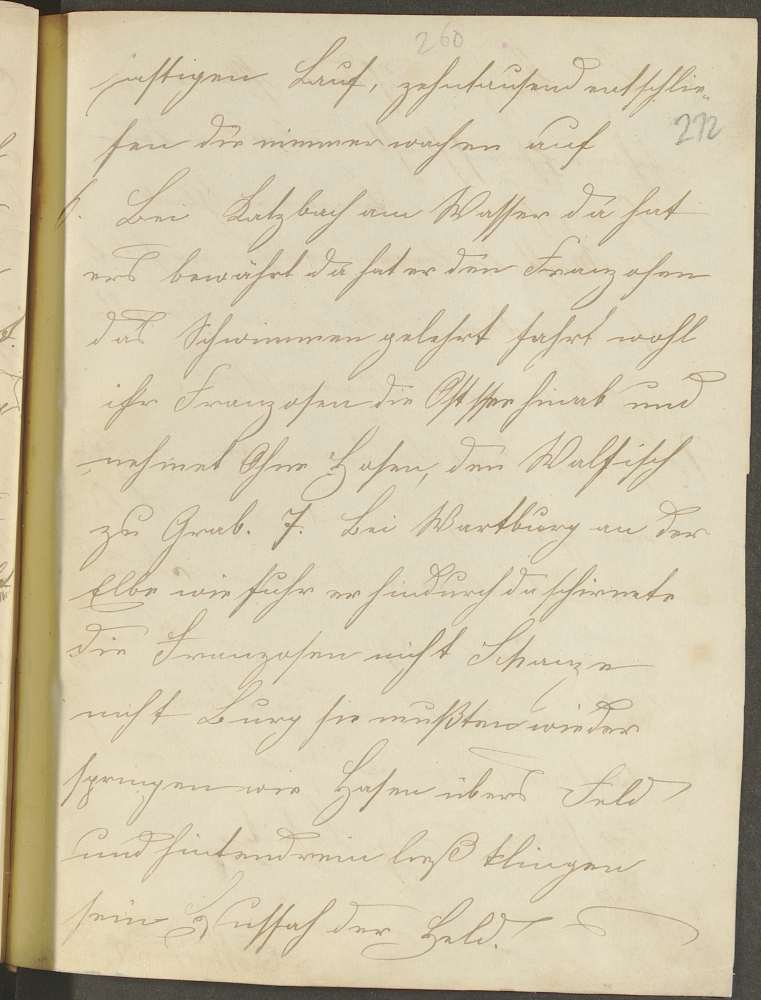 260
hastigen Lauf, zehntausend entschlie-
272
fen die nimmer wachen auf
6. Bei Katzbach am Wasser da hat
ers bewährt da hat er den Franzosen
das Schwimmen gelehrt fahrt wohl
ihr Franzosen die Ostsee hinab und
nehmet Ohne Hosen, den Walfisch
zu Grab. 7. Bei Wartburg an der
Elbe wie fuhr er hindurch da schirmte
die Franzosen nicht Schanze
nicht Burg sie mußten wieder
springen wie Hasen übers Feld
und hintendrein ließ klingen
sein Hussah der Held.